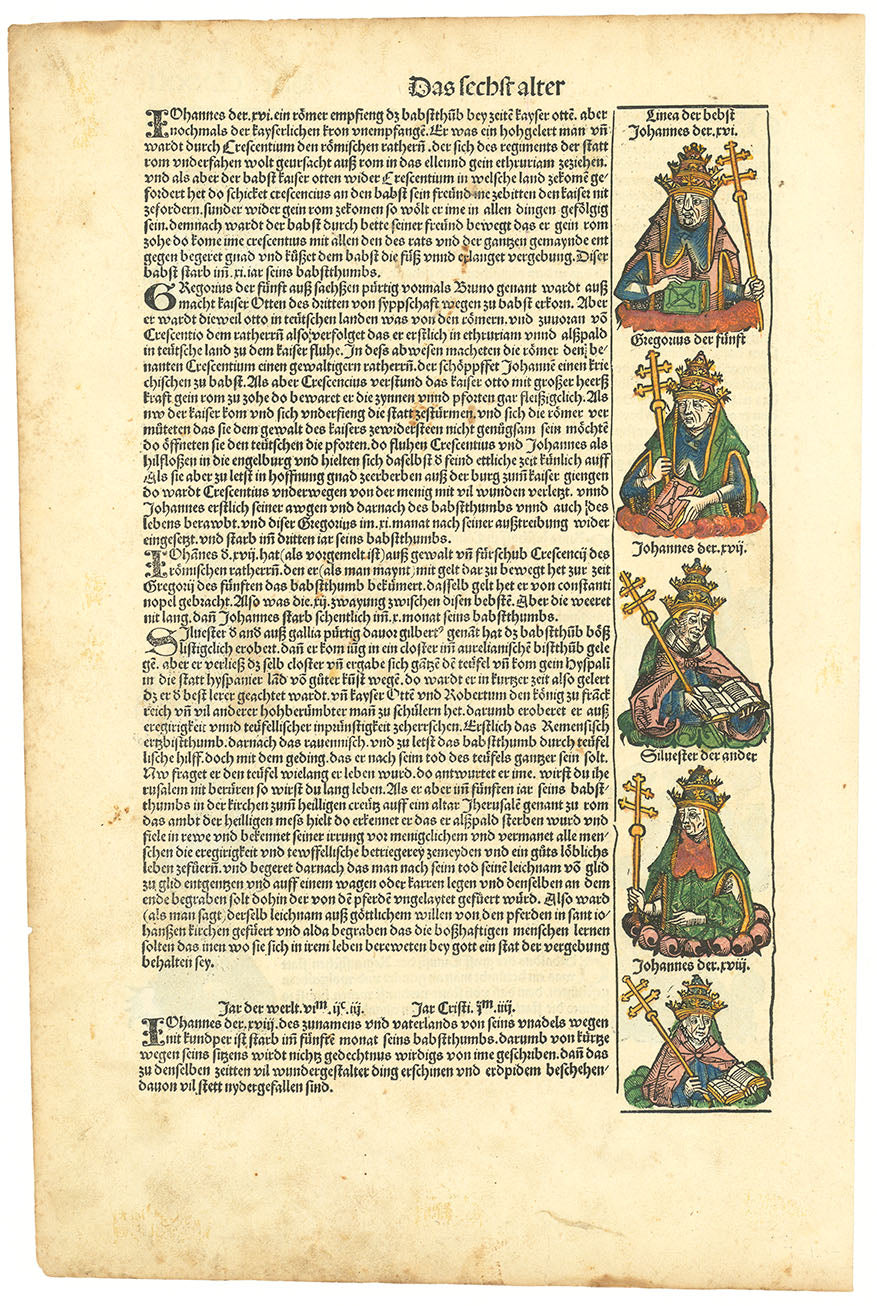 Das sechst alter
IOhannes der.xvi.ein römer empfieng dz babstthůb bey zeitē kayser otten. aber
nochmals der kayserlichen kron vnempfangē. Er was ein hohgelert man vñ
wardt durch Crescentium den römischen ratherñ.der sich des regiments der statt
rom vnderfahen wolt geursacht auß rom in das ellennd gein ethruriam zeziehen.
vnd als aber der babst kaiser otten wider Crescentium in welsche land zekomē ge-
fordert het do schicket crescencius an den babst sein freünd ine zebitten den kaiser nit
zefordern.sunder wider gein rom zekomen so wölt er ime in allen dingen gefölgig
sein.demnach wardt der babst durch bette seiner freünd bewegt das er gein rom
zohe do kome ime crescentius mit allen den des rats vnd der gantzen gemaynde ent
gegen begeret gnad vnd küßet dem babst die füß vnnd erlanget vergebung.Diser
babst starb im̄.xi.iar seins babstthumbs.
GRegorius der fünft auß sachßen pürtig vormals Bruno genant wardt auß
macht kaiser Otten des dritten von syppschaft wegen zu babst erkorn. Aber
er wardt dieweil otto in teütschen landen was von den römern.vnd zuuoran vō
Crescentio dem ratherrñ also verfolget das er erstlich in ethruriam vnnd alßpald
in teütsche land zu dem kaiser fluhe. In dess abwesen macheten die römer den be-
nanten Crescentium einen gewaltigern ratherrñ.der schöppffet Johannē einen krie
chischen zu babst.Als aber Crescencius verstund das kaiser otto mit großer heerß
kraft gein rom zu zohe do bewaret er die zynnen vnnd pforten gar fleißigclich. Als
nw der kaiser kom vnd sich vnderfieng die statt zestürmen.vnd sich die römer ver
müteten das sie dem gewalt des kaisers zewidersteen nicht genügsam sein möchtē
do öffneten sie den teütschen die pforten.do fluhen Crescentius vnd Johannes als
hilfloßen in die engelburg vnd hielten sich daselbst d feind ettliche zeit künlich auff
Als sie aber zu letst in hoffnung gnad zeerberben auß der burg zum̄ kaiser giengen
do wardt Crescentius vnderwegen von der menig mit vil wunden verletzt. vnnd
Johannes erstlich seiner awgen vnd darnach des babstthumbs vnnd auch des
lebens berawbt.vnd diser Gregorius im.xi.manat nach seiner außtreibung wider
eingesetzt.vnd starb im̄ dritten iar seins babstthumbs.
IOhānes d.xvij.hat(als vorgemelt ist)auß gewalt vñ fürschub Crescencij des
römischen ratherrñ.den er(als man maynt)mit gelt dar zu bewegt het zur zeit
Gregorij des fünften das babstthumb bekümert.dasselb gelt het er von constanti
nopel gebracht.Also was die.xij.zwayung zwischen disen bebstē. Aber die weeret
nit lang.dañ Johannes starb schentlich im̄.x.monat seins babstthumbs.
SIluester d and auß gallia pürtig dauor gilbert⁹ genāt hat dz babstthůb bößß
listigclich erobert.dañ er kom iūg in ein closter im̄ aurelianischē bistthůb gele
gē. aber er verließ dz selb closter vñ ergabe sich gātzē dē teüfel vñ kom gein Hyspali
in die statt hyspanier lād vō gůter kūst wegē.do wardt er in kurtzer zeit also gelert
dz er d best lerer geachtet wardt.vñ kayser Ottē vnd Robertum den könig zu frāck
reich vñ vil anderer hohberümbter mañ zu schülern het.darumb eroberet er auß
eregirigkeit vnnd teüfellischer inprünstigkeit zeherrschen.Erstlich das Remensisch
ertzbistthumb.darnach das rauennisch.vnd zu letst das babstthumb durch teüfel
lische hilff.doch mit dem geding.das er nach seim tod des teüfels gantzer sein solt.
Nw fraget er den teüfel wielang er leben wurd.do antwurtet er ime. wirst du ihe
rusalem nit berüren so wirst du lang leben.Als er aber im̄ fünften iar seins babst-
thumbs in der kirchen zum̄ heilligen creütz auff eim altar Jherusalē genant zu rom
das ambt der heilligen mess hielt do erkennet er das er alßpald sterben wurd vnd
fiele in rewe vnd bekennet seiner irrung vor menigclichem vnd vermanet alle men-
schen die eregirigkeit vnd tewffellische betriegerey zemeyden vnd ein gůts löblichs
leben zefüerñ.vnd begeret darnach das man nach seim tod seinē leichnam vō glid
zu glid entgentzen vnd auff einem wagen oder karren legen vnd denselben an dem
ende begraben solt dohin der von dē pferdē vngelaytet gefüert würd. Also ward
(als man sagt)derselb leichnam auß göttlichem willen von den pferden in sant io-
hanßen kirchen gefüert vnd alda begraben das die boßhaftigen menschen lernen
solten das inen wo sie sich in irem leben bereweten bey gott ein stat der vergebung
behalten sey.
Jar der werlt.viᵐ.ijᶜ.iij. Jar Cristi.jᵐ.iiij.
IOhannes der.xviij.des zunamens vnd vaterlands von seins vnadels wegen
nit kundper ist starb im̄ fünftē monat seins babstthumbs.darumb von kürtze
wegen seins sitzens wirdt nichtz gedechtnus wirdigs von ime geschriben.dañ das
zu denselben zeitten vil wundergestalter ding erschinen vnd erdpidem beschehen-
dauon vil stett nydergefallen sind.
Linea der bebst
Johannes der.xvi.
Gregorius der fünft
Johannes der.xvij.
Siluester der ander
Johannes der.xviij.